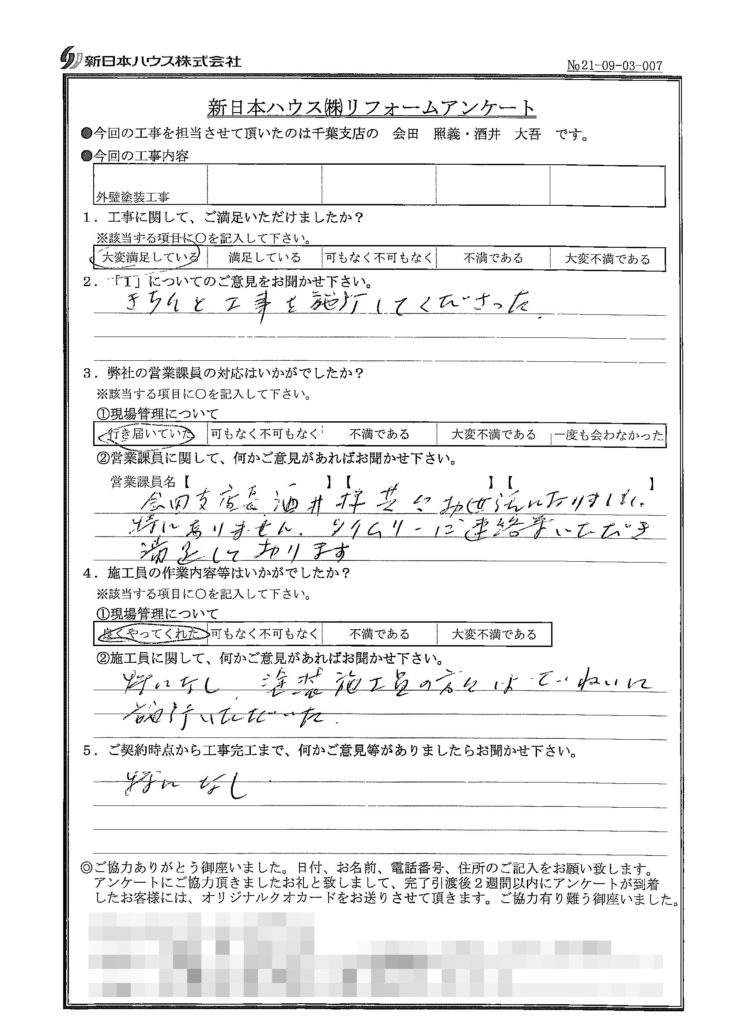 新日本ハウス株式会社
№21-09-03-007
新日本ハウス㈱リフォームアンケート
●今回の工事を担当させて頂いたのは千葉支店の 会田 照義・酒井 大吾 です。
●今回の工事内容
外壁塗装工事
1．工事に関して、ご満足いただけましたか？
※該当する項目に○を記入して下さい。
大変満足している 満足している 可もなく不可もなく 不満である 大変不満である
2．「1」についてのご意見をお聞かせ下さい。
きちんと工事を施行してくださった。
3．弊社の営業課員の対応はいかがでしたか？
※該当する項目に○を記入して下さい。
①現場管理について
行き届いていた 可もなく不可もなく 不満である 大変不満である 一度も会わなかった
②営業課員に関して、何かご意見があればお聞かせ下さい。
営業課員名【 】【 】【 】
会田支店長 酒井様 共にお世話になりました。
特にありません。タイムリーに連絡等いただき
満足しております
4．施工員の作業内容等はいかがでしたか？
※該当する項目に○を記入して下さい。
①現場管理について
良くやってくれた 可もなく不可もなく 不満である 大変不満である
②施工員に関して、何かご意見があればお聞かせ下さい。
特になし 塗装施工員の方々はていねいに
施行いただいた。
5．ご契約時点から工事完工まで、何かご意見等がありましたらお聞かせ下さい。
特になし
◎ご協力ありがとう御座いました。日付、お名前、電話番号、住所のご記入をお願い致します。
アンケートにご協力頂きましたお礼と致しまして、完了引渡後２週間以内にアンケートが到着
したお客様には、オリジナルクオカードをお送りさせて頂きます。ご協力有り難う御座いました。